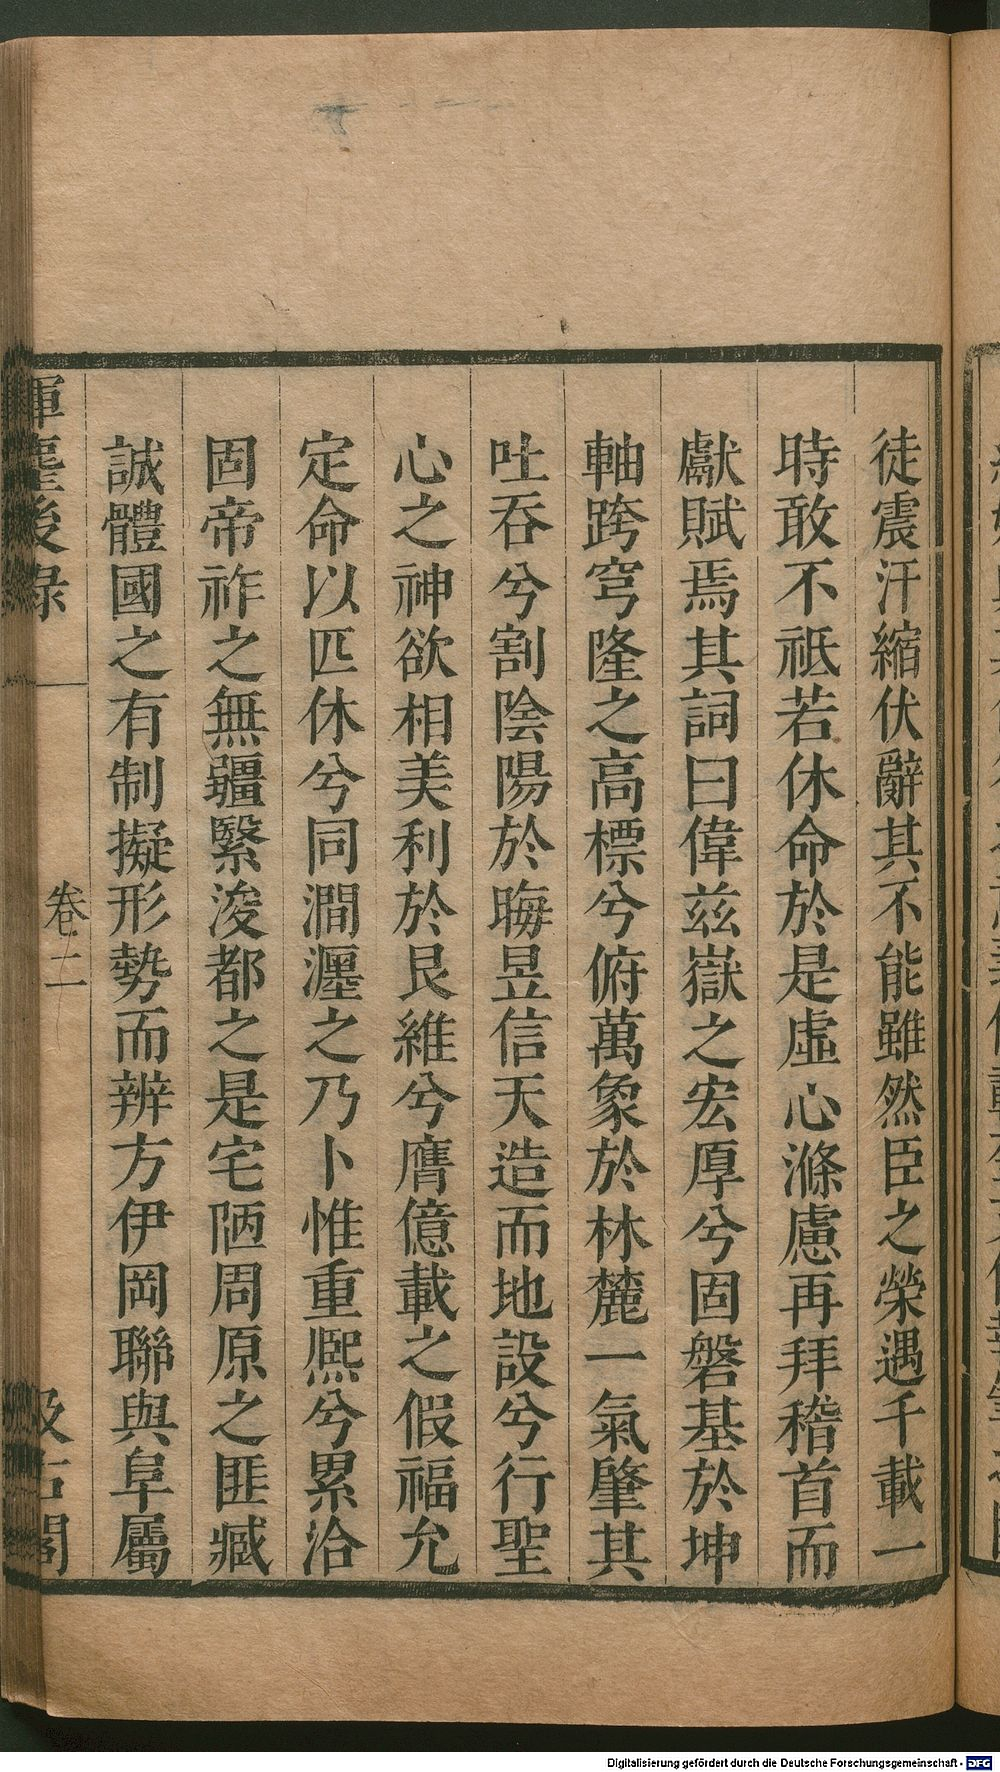 徒震汗縮伏辭其不能雖然臣之榮遇千載一
時敢不祗若休命於是虛心滌慮再拜稽首而
獻賦焉其詞曰偉茲嶽之宏厚兮固磐基於坤
軸跨穹隆之高標兮俯萬象於林麓一氣肇其
吐吞兮割陰陽於晦昱信天造而地設兮行聖
心之神欲相美利於艮維兮膺億載之假福允
定命以匹休兮同澗瀍之乃卜惟重熈兮累洽
固帝祚之無疆繄浚都之是宅陋周原之匪臧
誠體國之有制擬形勢而辨方伊岡聯與阜屬
揮麈後錄
卷二
汲古閣
Digitalisierung gefördert durch die Deutsche Forschungsgemeinschaft - DFG